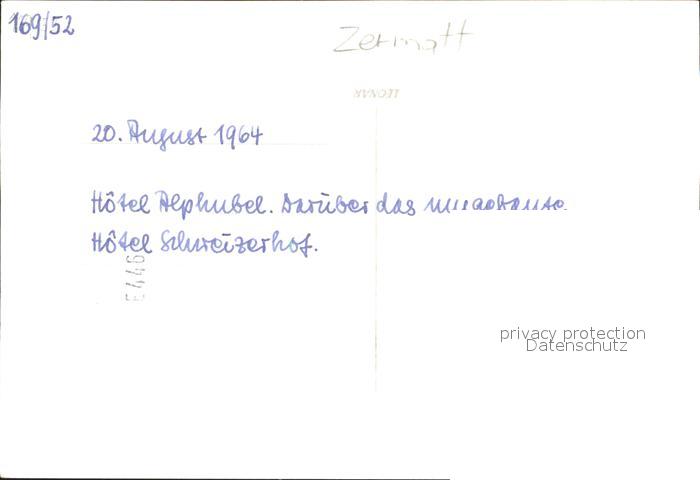 169/52
Zermatt
LEONAR
20. August 1964
Hôtel Alphubel. Darüber das umgebaute
Hôtel Schweizerhof.
E446
privacy protection
Datenschutz